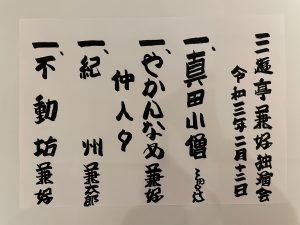 三遊亭兼好独演会
令和三年二月十二日
一、真田小僧
一、やかんなめ 兼好
仲入り
一、紀州 兼太郎
一、不動坊 兼好